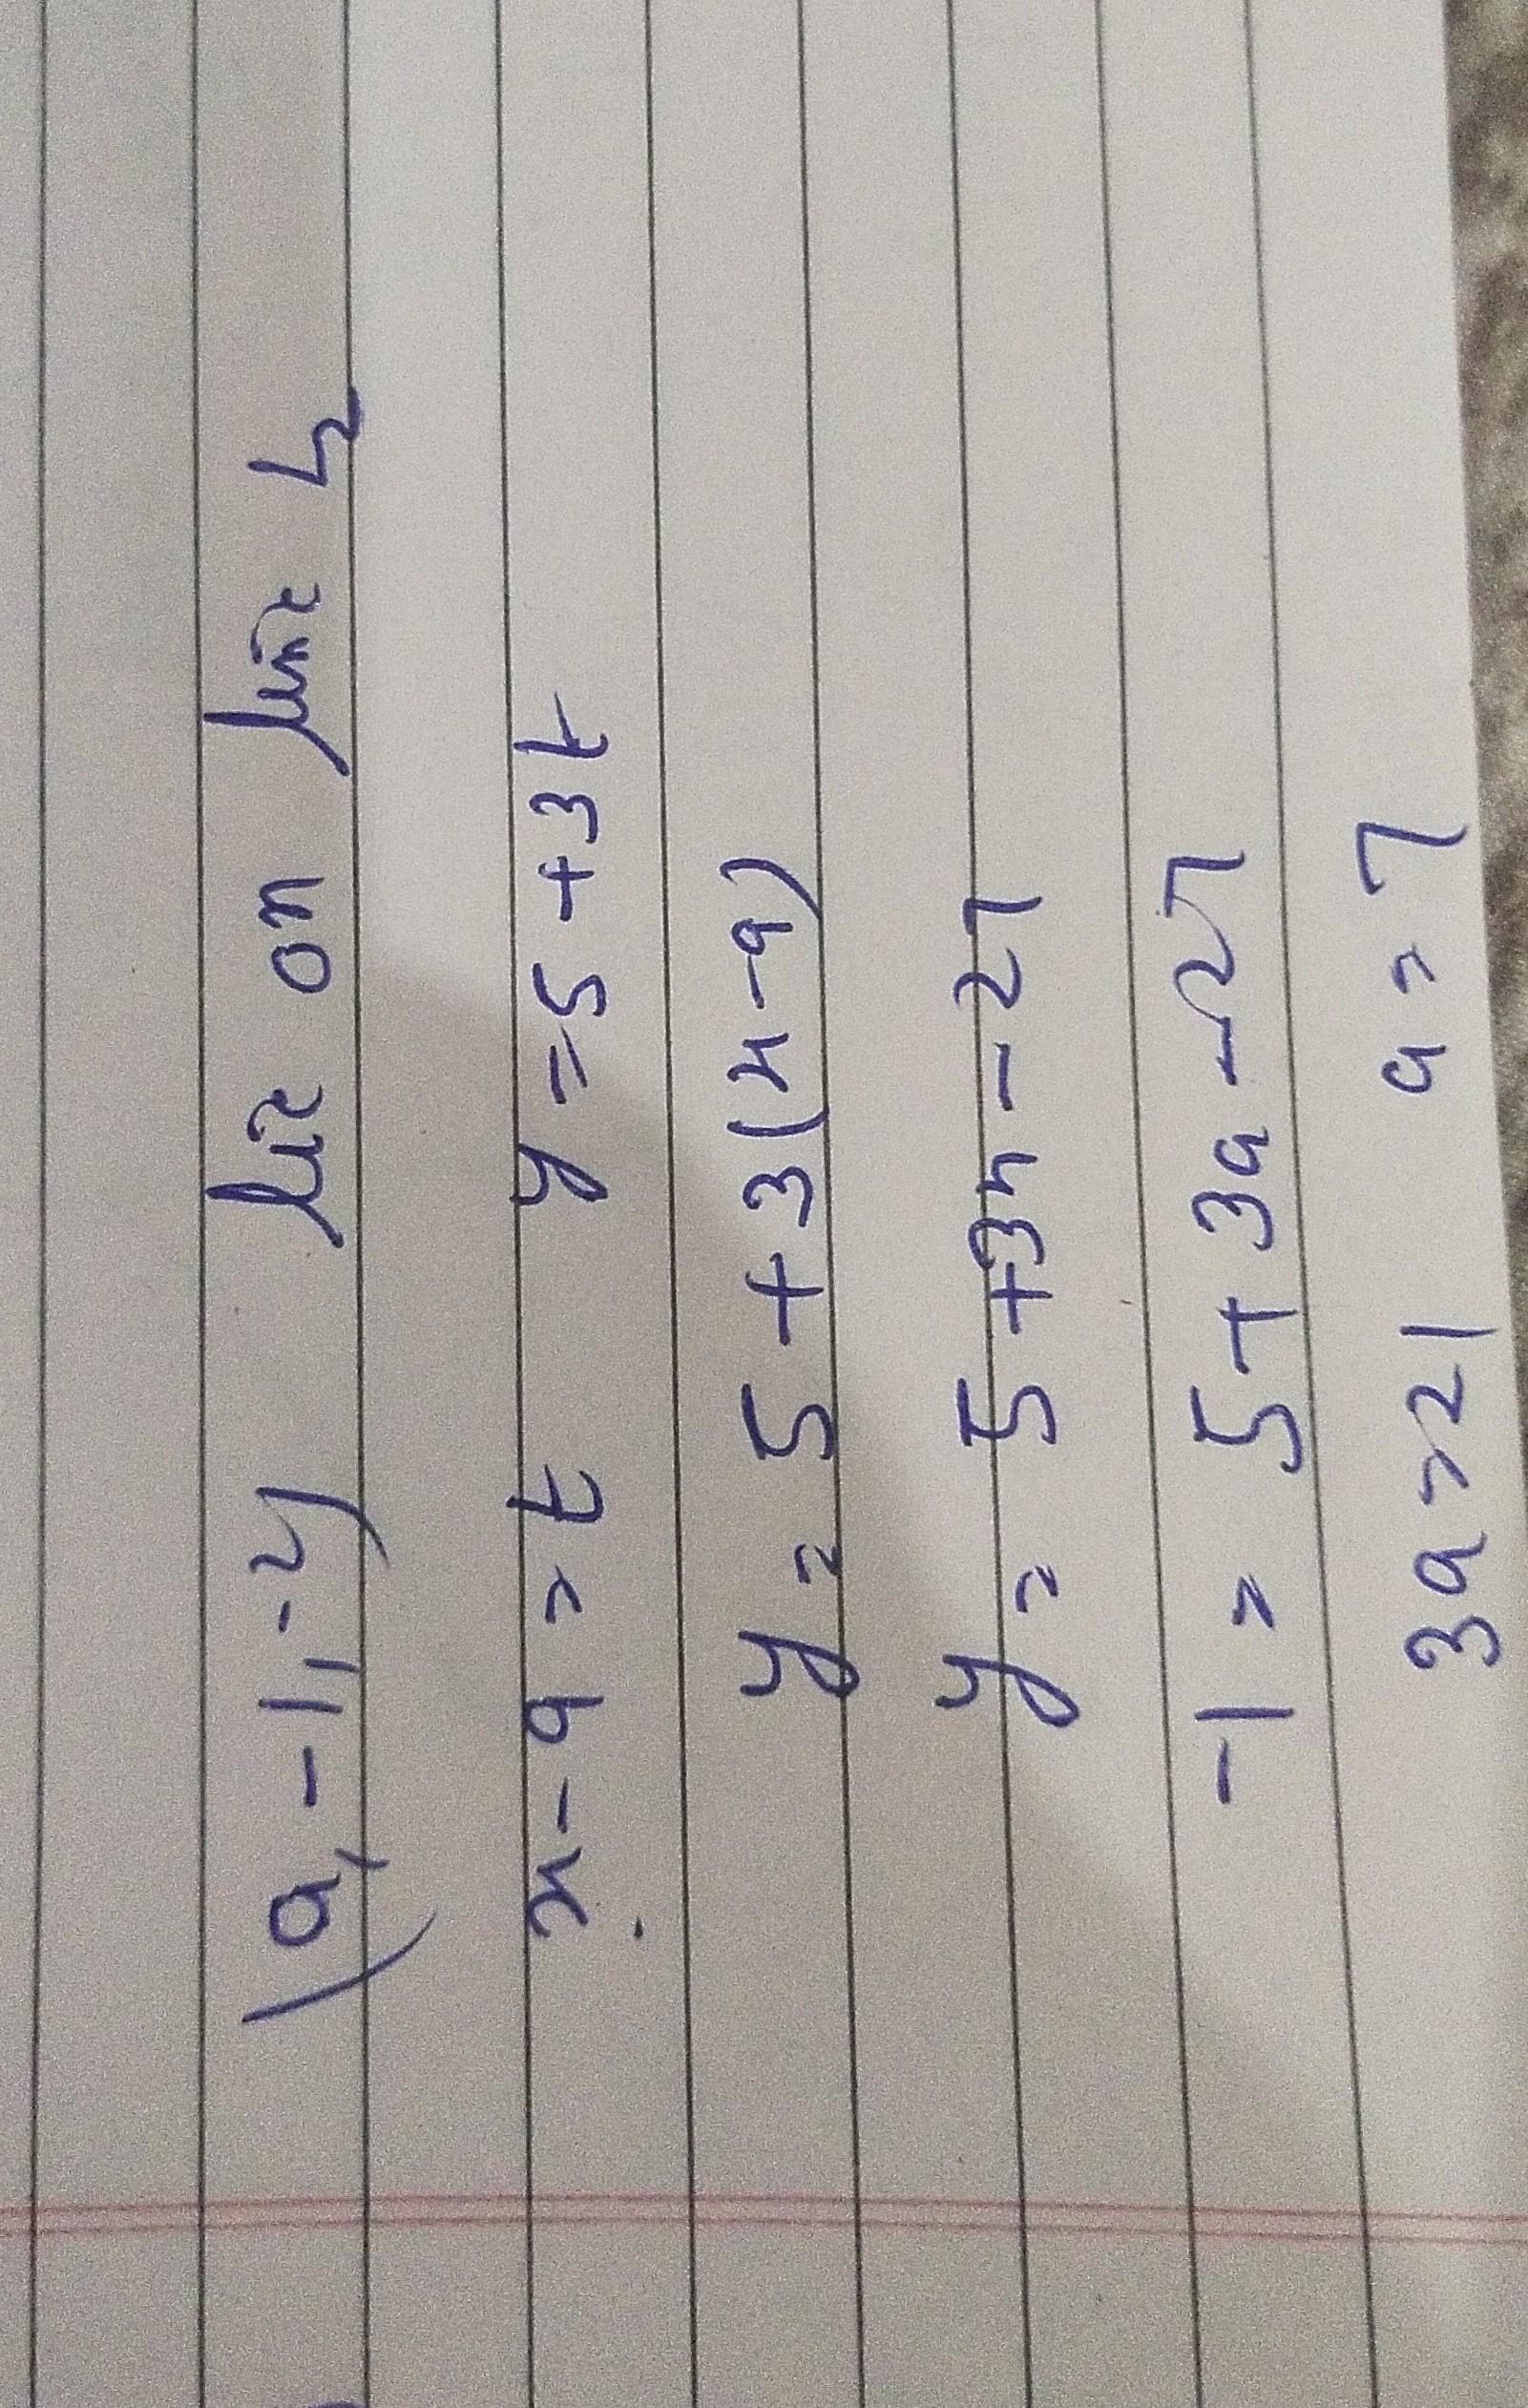 (a, -1, -4) lie on line L2
x - 9 = t y = 5 + 3t
y = 5 + 3(x - 9)
y = 5 + 3x - 27
-1 = 5 + 3a - 27
3a = 21 a = 7